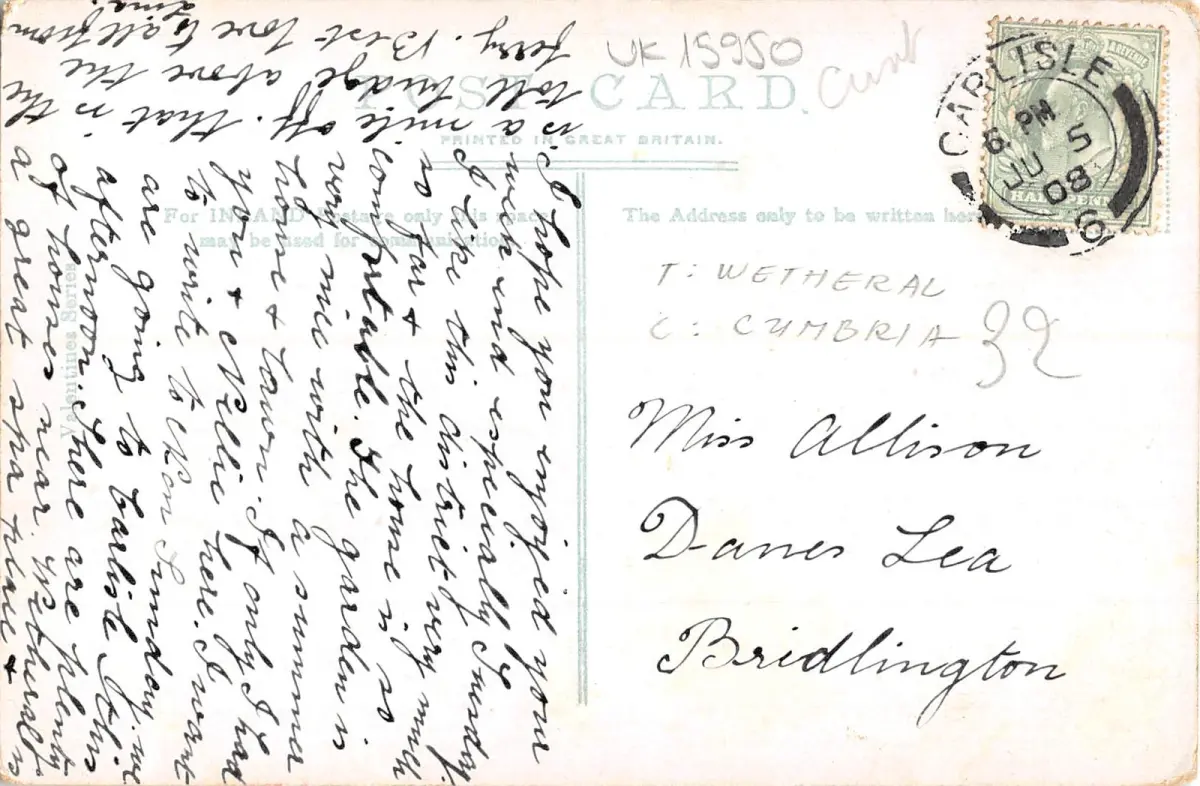 UK 15950
POST CARD.
PRINTED IN GREAT BRITAIN.
For INLAND Postage only this space
may be used for communication.
The Address only to be written here
Valentines Series
CARLISLE
6 PM
JU 5
08
6
HALFPENNY
T: WETHERAL
C: CUMBRIA
32
Miss Allison
Danes Lea
Bridlington
I hope you enjoyed your
week end especially Sunday.
I like this district very much
so far & the house is so
comfortable. The garden is
very nice with a summer
house & lawn. If only I had
you & Nellie here. I want
to write to Ken Sunday. We
are going to Carlisle this
afternoon. There are plenty
of houses near. Wetheral is
a great spa time &
is a mile off. that is the
toll bridge above the
ferry. Best love to all from